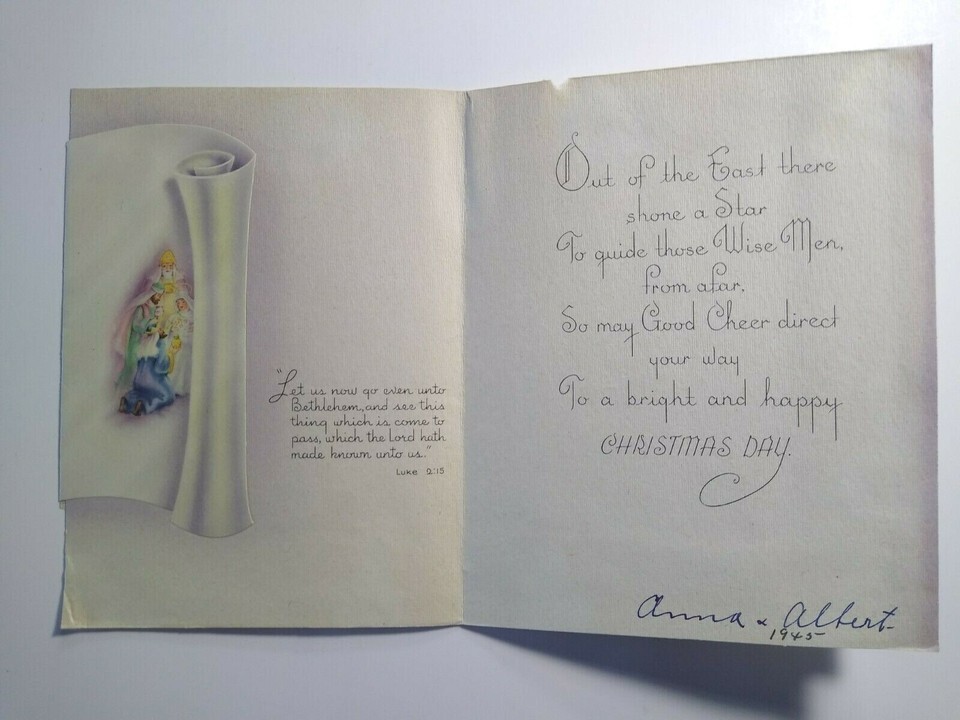 "Let us now go even unto
Bethlehem, and see this
thing which is come to
pass, which the Lord hath
made known unto us."
Luke 2:15
Out of the East there
shone a Star
To guide those Wise Men,
from afar,
So may Good Cheer direct
your way
To a bright and happy
CHRISTMAS DAY.
Anna & Albert
1945